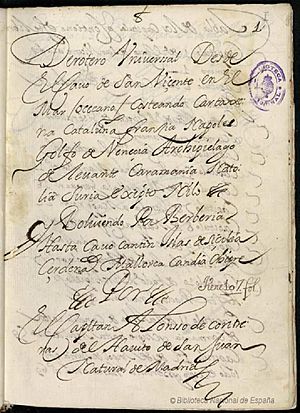 8
1
Derotero Univerzal Desde
El Cavo de San Vicente en el
Mar occeano Costeando Cartaxe
na Cataluña Fransia Napol
Golfo de Venecia Archipielago
de levante Caramania Nato
lia Suria Exipto Nilo
y Bolviendo Por Berberia
Hasta Cavo Cantin Islas de Sicilia
Cerdeña Mallorca Candia
Por
El Capitan Alonso de contre
ras del Havito de San Juan
Natural de Madrid
© Biblioteca Nacional de España